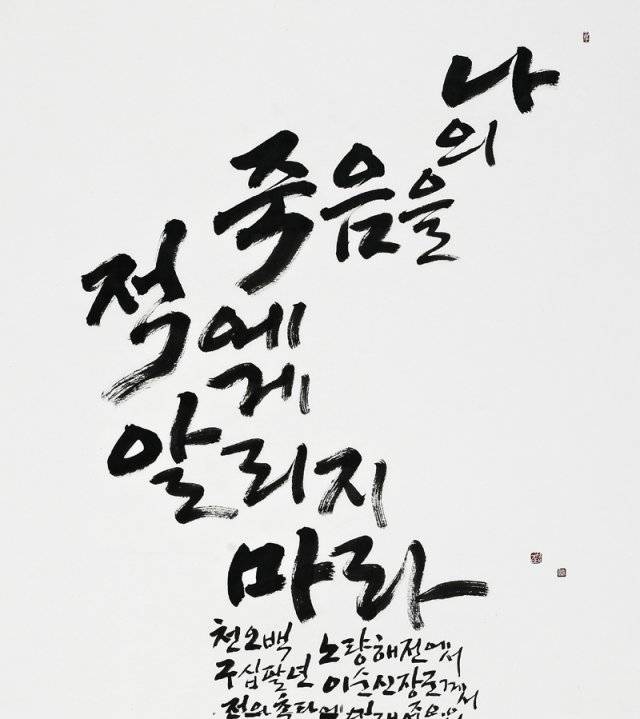 나의
죽음을
적에게
알리지
마라
천오백 노량해전에서
구십팔년 이순신장군께서
적의